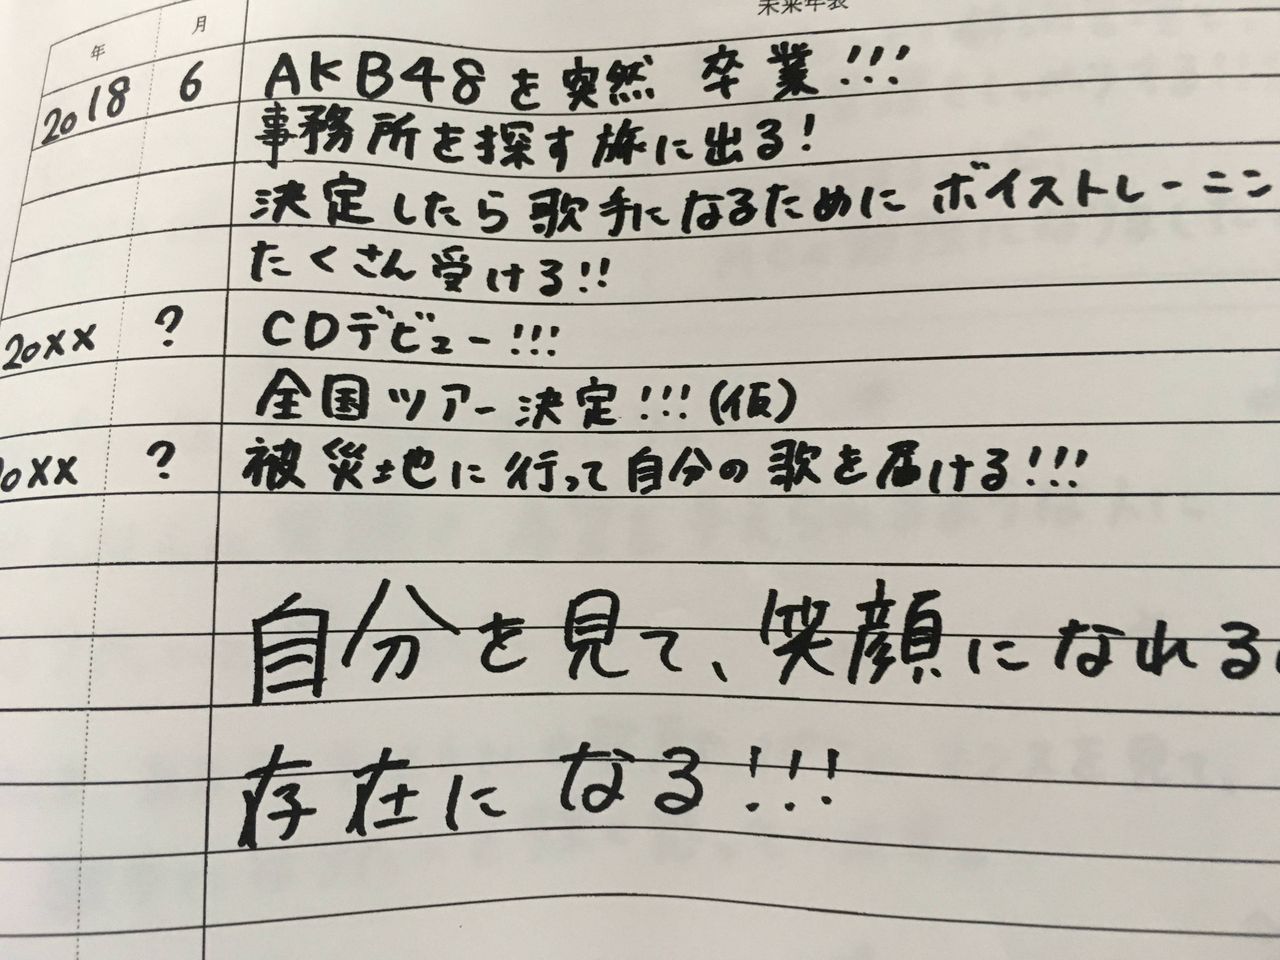 未来年表
年 月
2018 6 AKB48を突然 卒業!!!
事務所を探す旅に出る!
決定したら歌手になるためにボイストレーニン
たくさん受ける!!
20XX ? CDデビュー!!!
全国ツアー決定!!!(仮)
0XX ? 被災地に行って自分の歌を届ける!!!
自分を見て、笑顔になれる
存在になる!!!